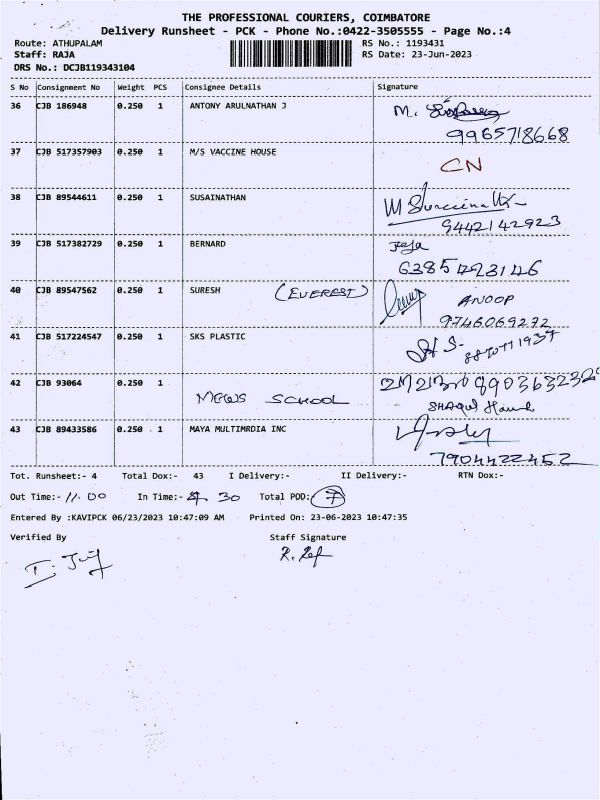 THE PROFESSIONAL COURIERS, COIMBATORE
Delivery Runsheet - PCK - Phone No.:0422-3505555 - Page No.:4
Route: ATHUPALAM RS No.: 1193431
Staff: RAJA RS Date: 23-Jun-2023
DRS No.: DCJB119343104
S No Consignment No Weight PCS Consignee Details Signature
36 CJB 186948 0.250 1 ANTONY ARULNATHAN J M.
9965718668
37 CJB 517357903 0.250 1 M/S VACCINE HOUSE CN
38 CJB 89544611 0.250 1 SUSAINATHAN
9442142923
39 CJB 517382729 0.250 1 BERNARD
6385423146
40 CJB 89547562 0.250 1 SURESH (EVEREST) ANOOP
9746069272
41 CJB 517224547 0.250 1 SKS PLASTIC
42 CJB 93064 0.250 1
MEWS SCHOOL
43 CJB 89433586 0.250 1 MAYA MULTIMRDIA INC
7904422452
Tot. Runsheet:- 4 Total Dox:- 43 I Delivery:- II Delivery:- RTN Dox:-
Out Time:- 11.00 In Time:- 30 Total POD: 7
Entered By :KAVIPCK 06/23/2023 10:47:09 AM Printed On: 23-06-2023 10:47:35
Verified By Staff Signature